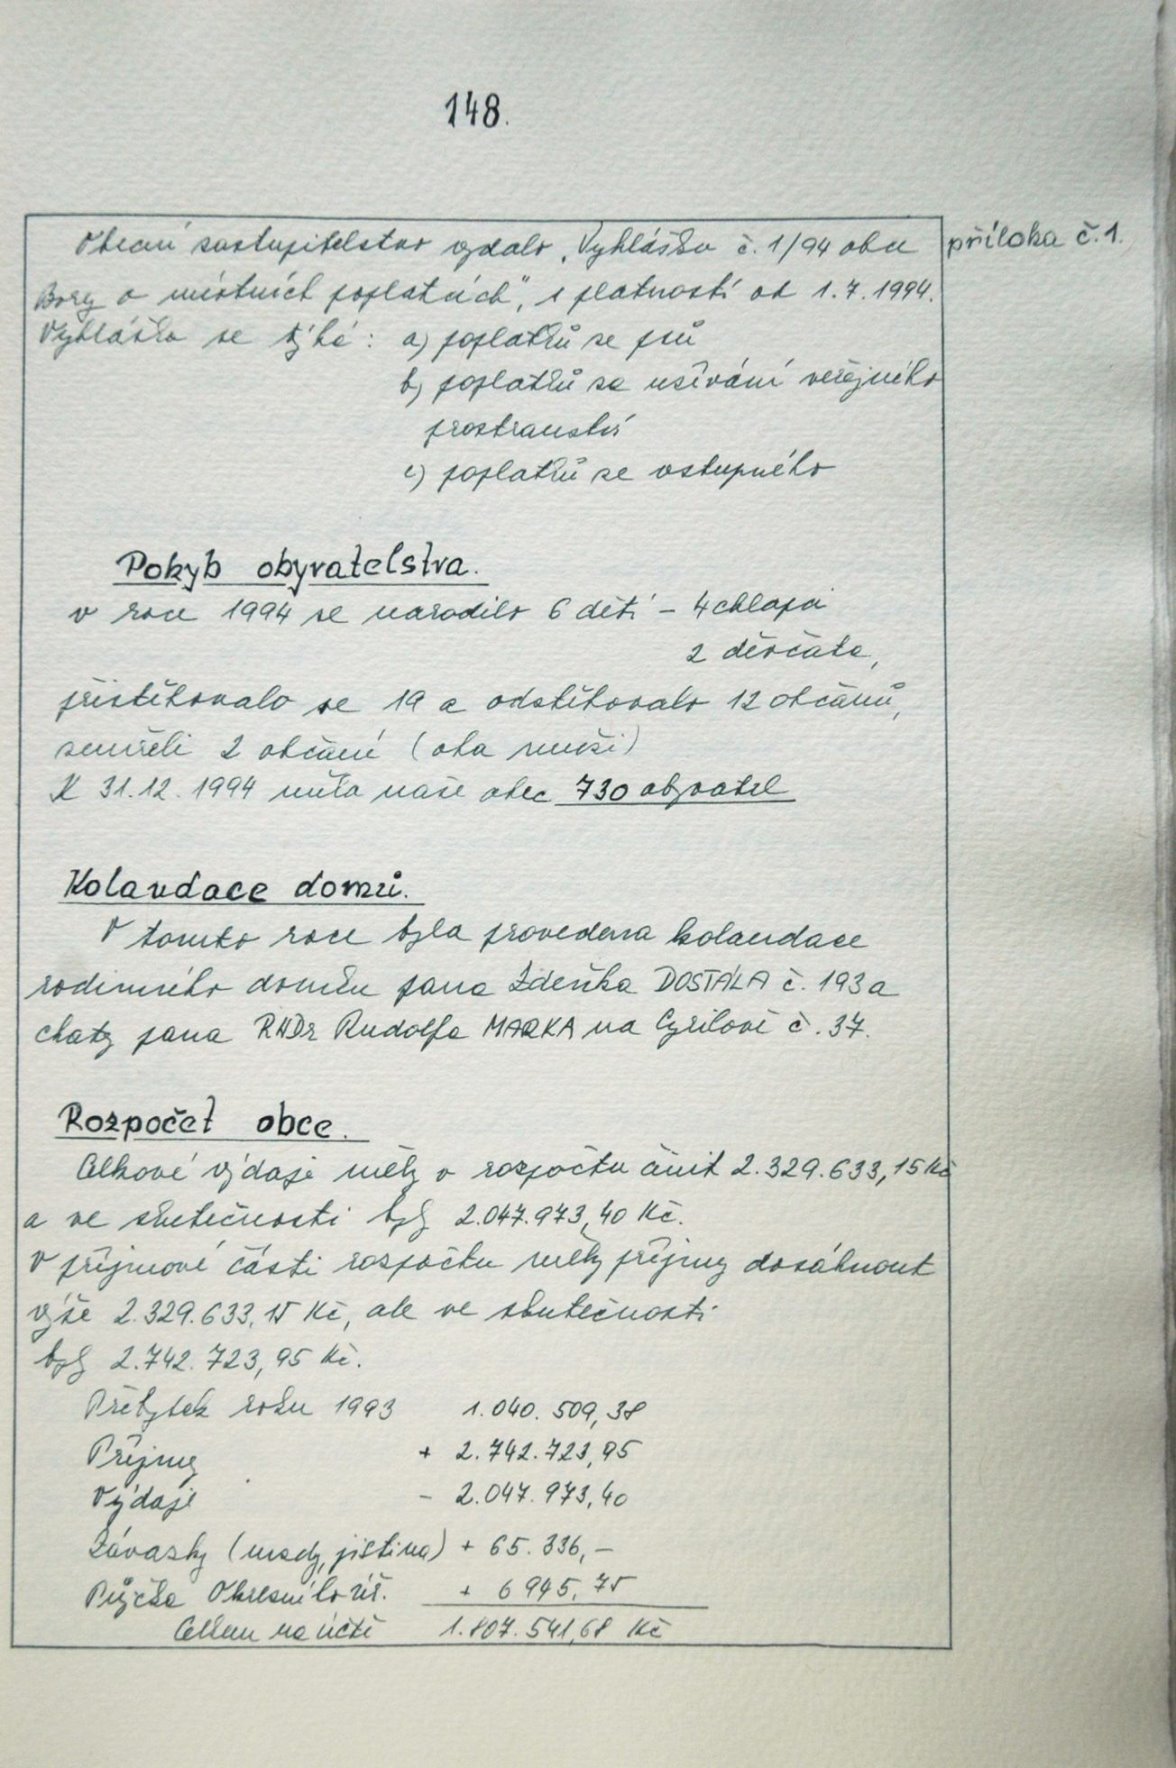 148.
Obecní zastupitelstvo vydalo „Vyhlášku č. 1/94 obce
příloha č. 1.
Bory o místních poplatcích", s platností od 1.7.1994.
Vyhláška se týká: a) poplatků ze psů
b) poplatků za užívání veřejného
prostranství
c) poplatků ze vstupného
Pohyb obyvatelstva.
V roce 1994 se narodilo 6 dětí – 4 chlapci
2 děvčata,
přistěhovalo se 19 a odstěhovalo 12 občanů,
zemřeli 2 občané (oba muži)
K 31.12.1994 měla naše obec 730 obyvatel
Kolaudace domů.
V tomto roce byla provedena kolaudace
rodinného domku pana Zdeňka DOSTÁLA č. 193 a
chaty pana RNDr Rudolfa MARKA na Cyrilově č. 37.
Rozpočet obce.
Celkové výdaje měly v rozpočtu činit 2.329.633,15 Kč
a ve skutečnosti byly 2.047.973,40 Kč.
V příjmové části rozpočtu měly příjmy dosáhnout
výše 2.329.633,15 Kč, ale ve skutečnosti
byly 2.742.723,95 Kč.
Přebytek roku 1993 1.040.509,38
Příjmy + 2.742.723,95
Výdaje – 2.047.973,40
Závazky (mzdy, jistina) + 65.336,–
Půjčka Okresního úř. + 6945,75
Celkem na účtě 1.807.541,68 Kč